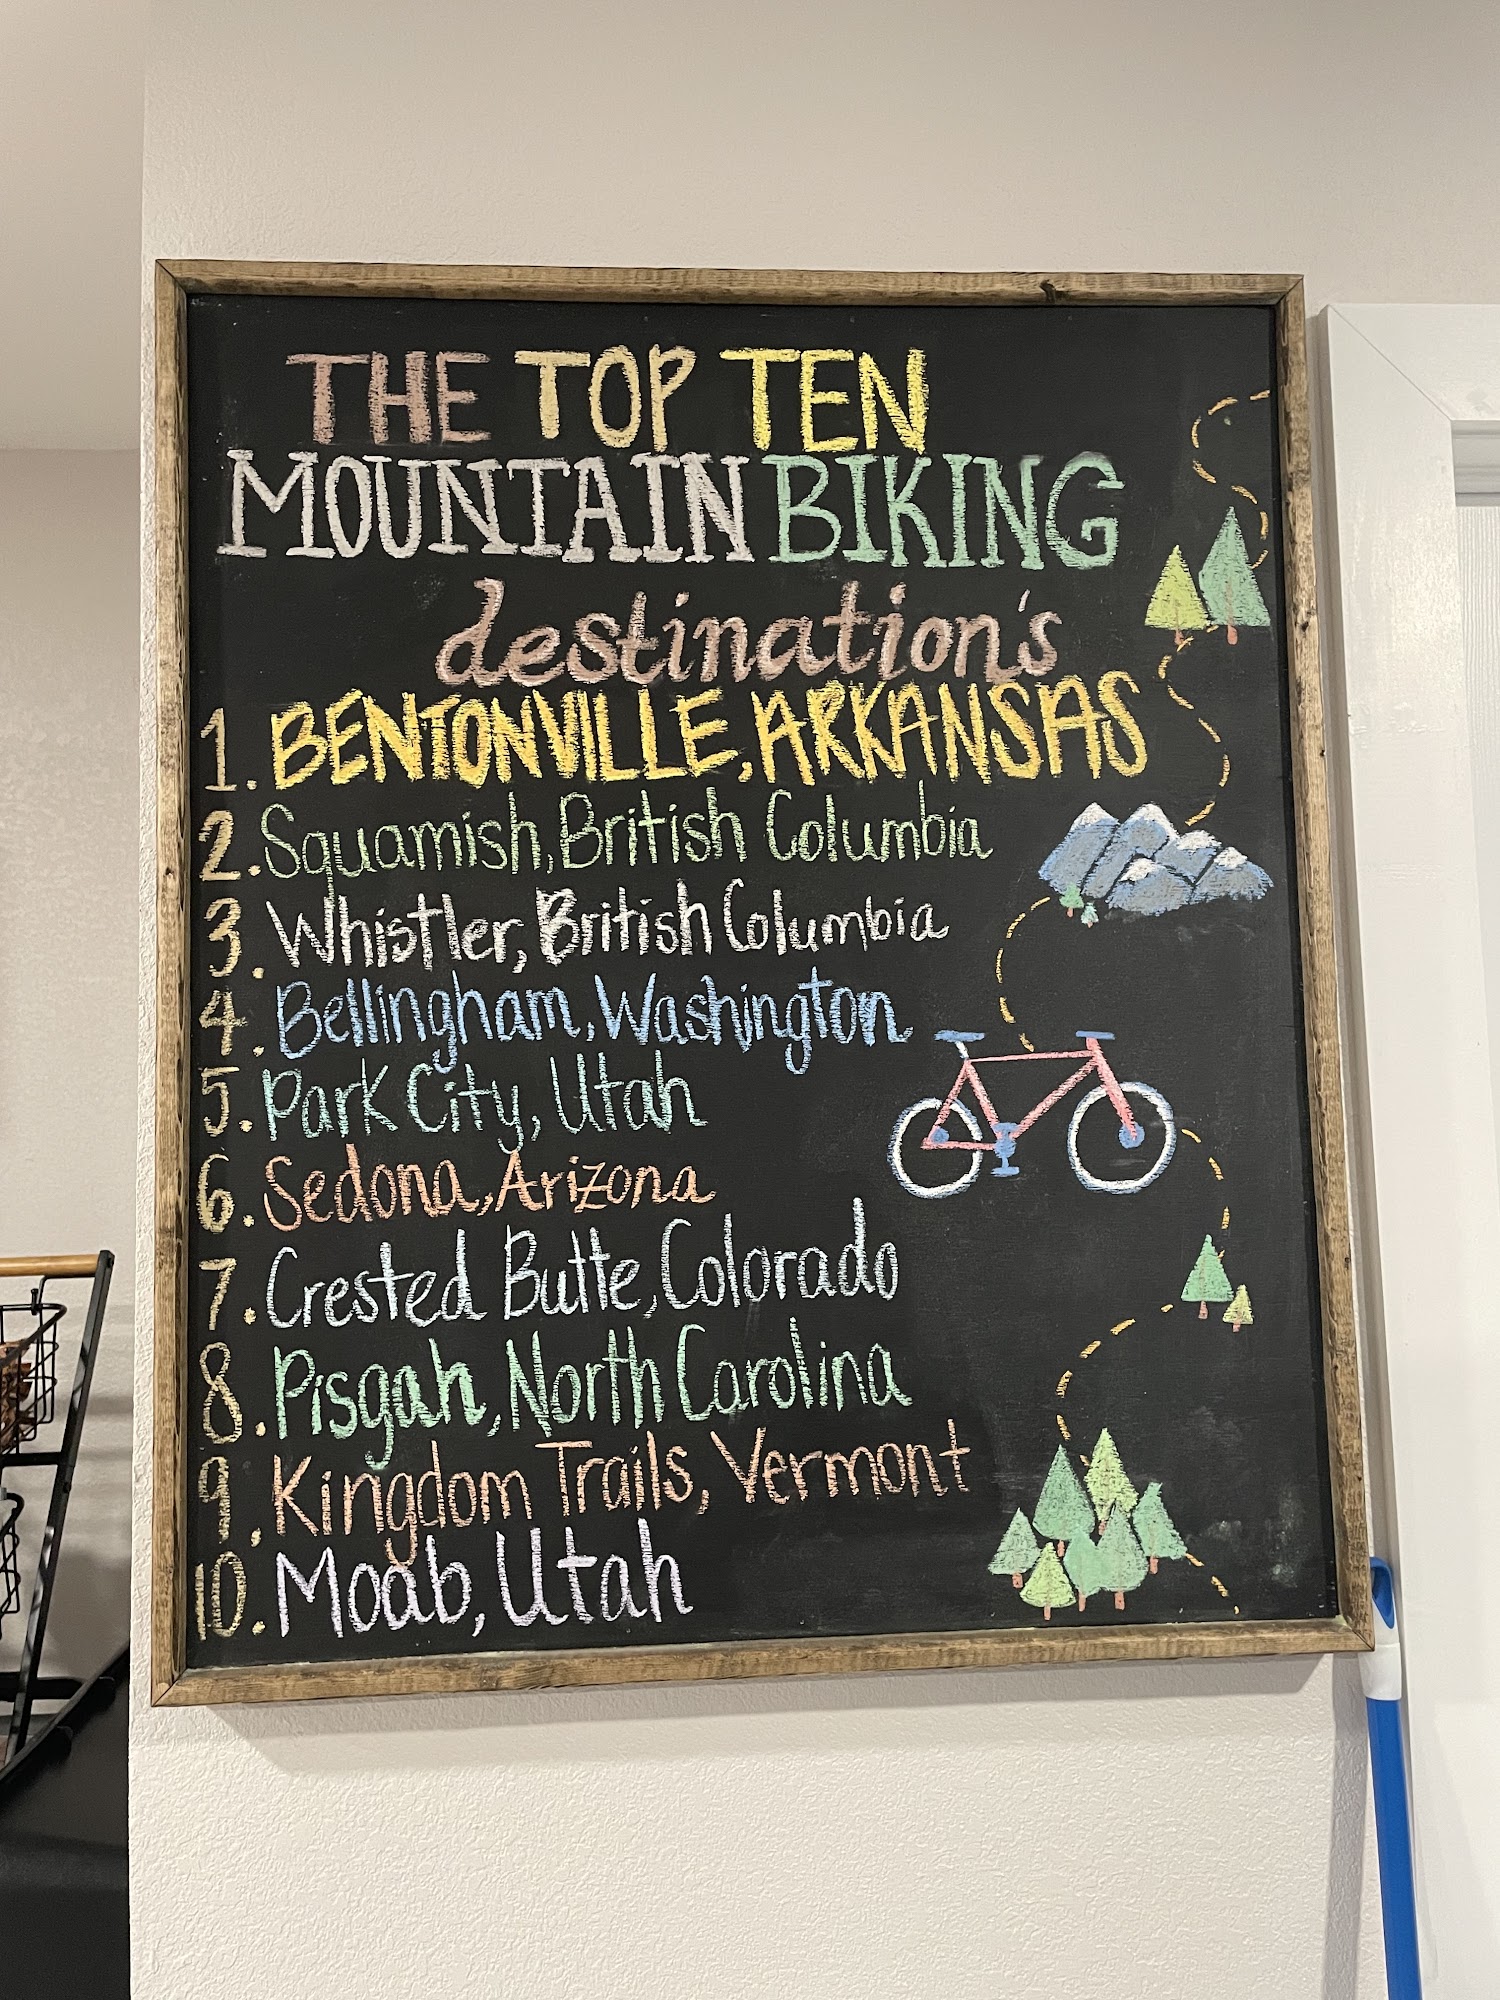 THE TOP TEN
MOUNTAIN BIKING
destination's
1. BENTONVILLE, ARKANSAS
2. Squamish, British Columbia
3. Whistler, British Columbia
4. Bellingham, Washington
5. Park City, Utah
6. Sedona, Arizona
7. Crested Butte, Colorado
8. Pisgah, North Carolina
9. Kingdom Trails, Vermont
10. Moab, Utah